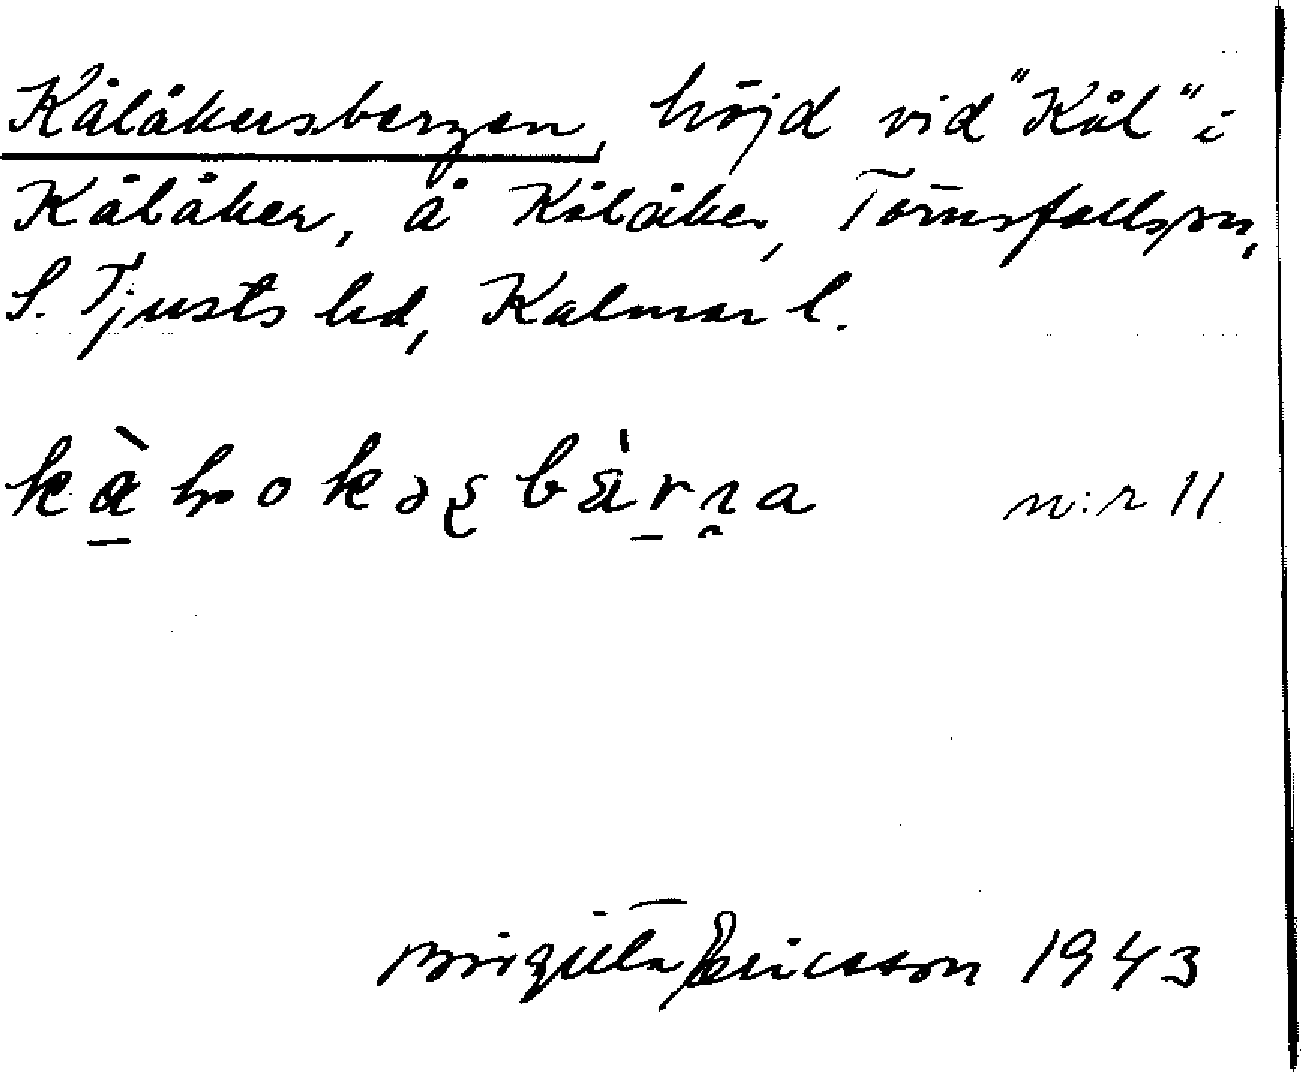 Kålåkersbergen, höjd vid "Kål" i
Kålåker, å Kålåker, Törnsfalls sn,
S. Tjusts hd, Kalmar l.
n:r 11
Birgitta Ericsson 1943